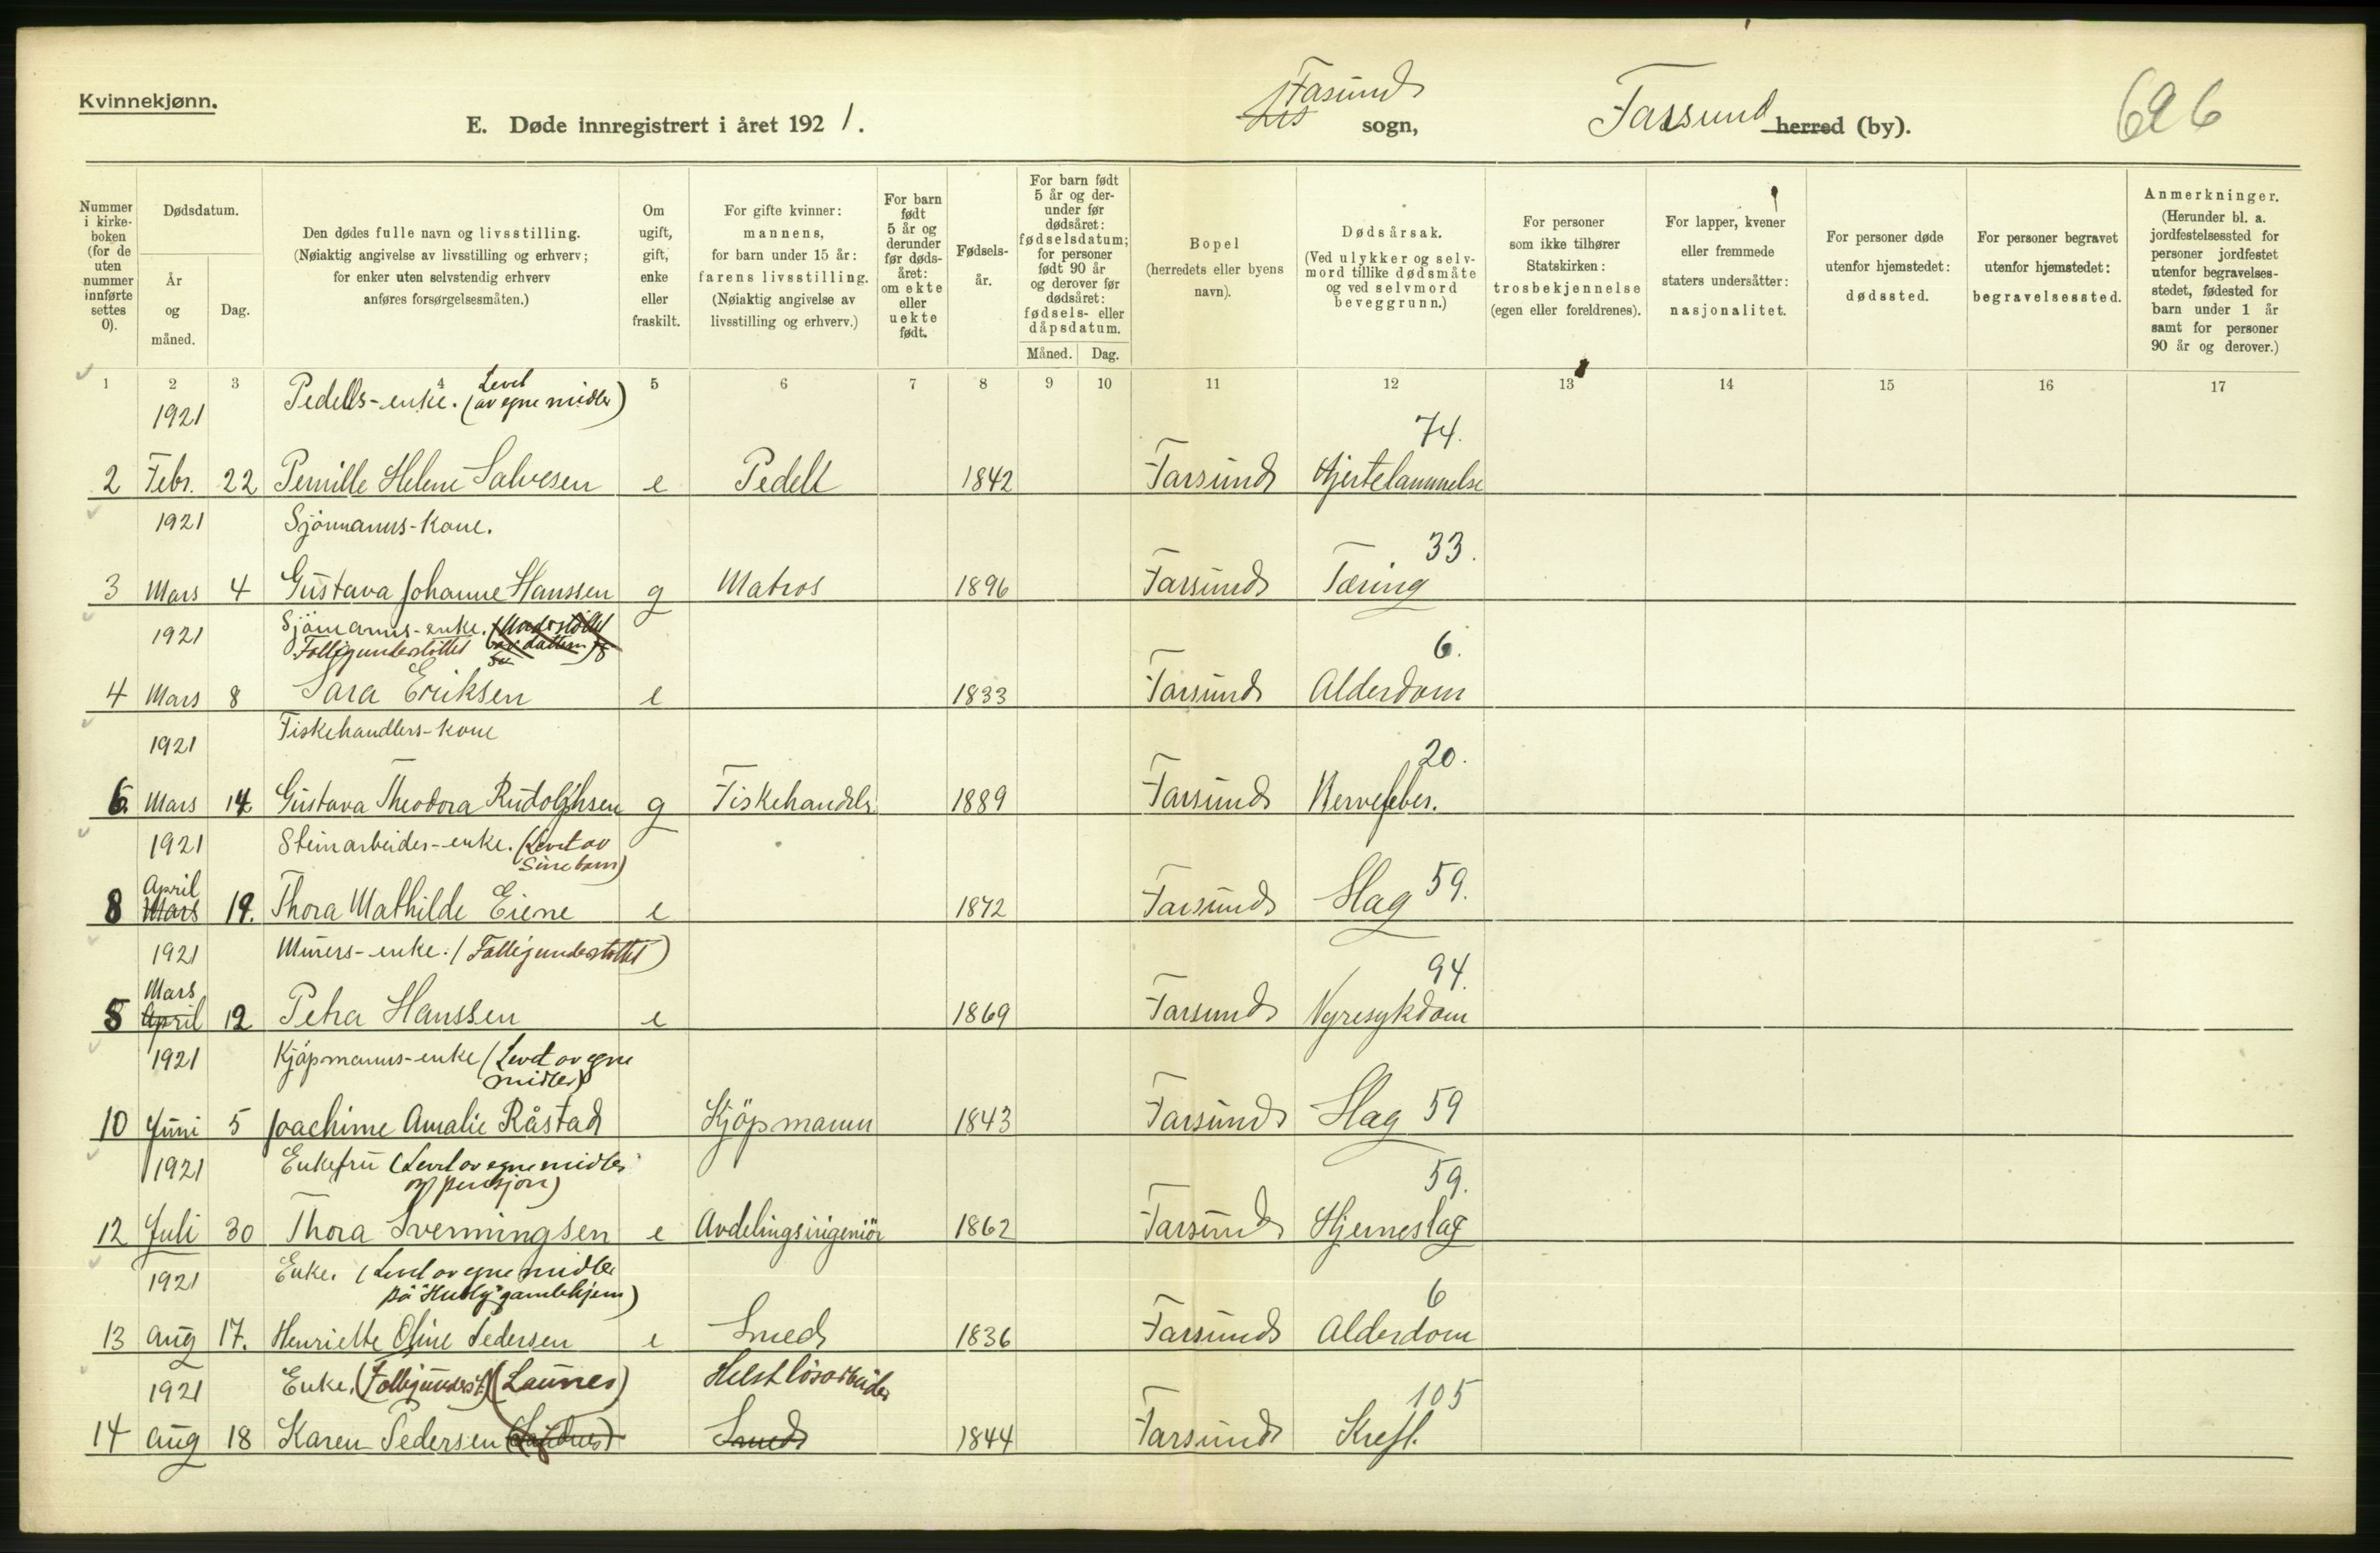 Kvinnekjønn.
E. Døde innregistrert i året 1921.
Farsund
Lis sogn,
Farsund herred (by).
696
Nummer i kirkeboken (for de uten nummer innførte settes 0).
Dødsdatum.
År og måned.
Dag.
Den dødes fulle navn og livsstilling.
(Nøiaktig angivelse av livsstilling og erhverv;
for enker uten selvstendig erhverv
anføres forsørgelsesmåten.)
Om ugift, gift, enke eller fraskilt.
For gifte kvinner: mannens,
for barn under 15 år:
farens livsstilling.
(Nøiaktig angivelse av
livsstilling og erhverv.)
For barn født 5 år og derunder før dødsåret: om ekte eller uekte født.
Fødselsår.
For barn født 5 år og derunder før dødsåret: fødselsdatum; for personer født 90 år og derover før dødsåret: fødsels- eller dåpsdatum.
Måned. Dag.
Bopel
(herredets eller byens
navn).
Dødsårsak.
(Ved ulykker og selvmord tillike dødsmåte og ved selvmord beveggrunn.)
For personer
som ikke tilhører
Statskirken:
trosbekjennelse
(egen eller foreldrenes).
For lapper, kvener
eller fremmede
staters undersåtter:
nasjonalitet.
For personer døde
utenfor hjemstedet:
dødssted.
For personer begravet
utenfor hjemstedet:
begravelsessted.
Anmerkninger.
(Herunder bl. a.
jordfestelsessted for
personer jordfestet
utenfor begravelses-
stedet, fødested for
barn under 1 år
samt for personer
90 år og derover.)
1 2 3 4 5 6 7 8 9 10 11 12 13 14 15 16 17
1921 Pedells-enke. (Levet av egne midler) 74.
2 Febr. 22 Pernille Helene Salvesen e Pedell 1842 Farsund Hjertelammelse
1921 Sjömanns-kone. 33.
3 Mars 4 Gustava Johanne Hanssen g Matros 1896 Farsund Tæring
1921 Sjömanns-enke. Fattigunderstöttet 6.
4 Mars 8 Sara Eriksen e 1833 Farsund Alderdom
1921 Fiskehandlers-kone 20.
6 Mars 14 Gustava Theodora Rudolphsen g Fiskehandler 1889 Farsund Nervefeber.
1921 Steinarbeider-enke. (Levet av sine barn)
8 April Mars 19. Thora Mathilde Eiene e 1872 Farsund Slag 59.
1921 Murers-enke. (Fattigunderstöttet) 94.
5 Mars April 12 Petra Hanssen e 1869 Farsund Nyresykdom
1921 Kjöpmanns-enke (Levet av egne midler)
10 Juni 5 Joachime Amalie Råstad Kjöpmann 1843 Farsund Slag 59
1921 Enkefru (Levet av egne midler og pensjon) 59.
12 Juli 30 Thora Svenningsen e Avdelingsingeniör 1862 Farsund Hjerneslag
1921 Enke. (Levet av egne midler på "Husby" gamlehjem) 6
13 Aug 17. Henriette Oline Pedersen e Smed 1836 Farsund Alderdom
1921 Enke. (Fattigunderst.) (Launes) Helst lösarbeider 105
14 Aug 18 Karen Pedersen Smed 1844 Farsund Kreft.